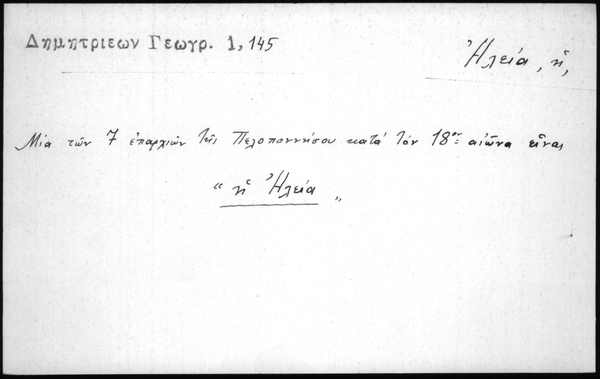 Δημητριεων Γεωγρ. 1,145
Ἠλεία, ἡ,
Μία τῶν 7 ἐπαρχιῶν τῆς Πελοποννήσου κατά τόν 18ον αἰῶνα εἶναι
“ ἡ Ἠλεία „